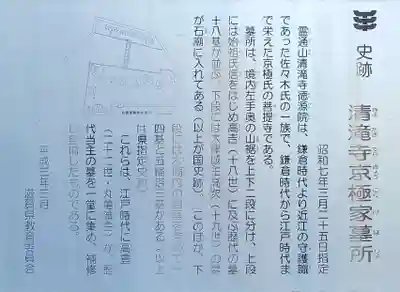 史跡 清滝寺京極家墓所
昭和七年三月二十五日指定
霊通山清滝寺徳源院は、鎌倉時代より近江の守護職
であった佐々木氏の一族で、鎌倉時代から江戸時代ま
で栄えた京極氏の菩提寺である。
墓所は、境内左手奥の山裾を上下二段に分け、上段
には始祖氏信をはじめ高吉（十八世）に及ぶ歴代の墓
十八基が並び、下段には大津城主高次（十九世）の墓
が石廟に入れてある（以上が国史跡）。このほか、下
四基と五輪塔三基がある（以上
は県指定史跡）。
これらは、江戸時代に高豊
（二十二世・丸亀藩主）が、歴
代当主の墓を一堂に集め、補修
したものである。
平成三年三月
滋賀県教育委員会